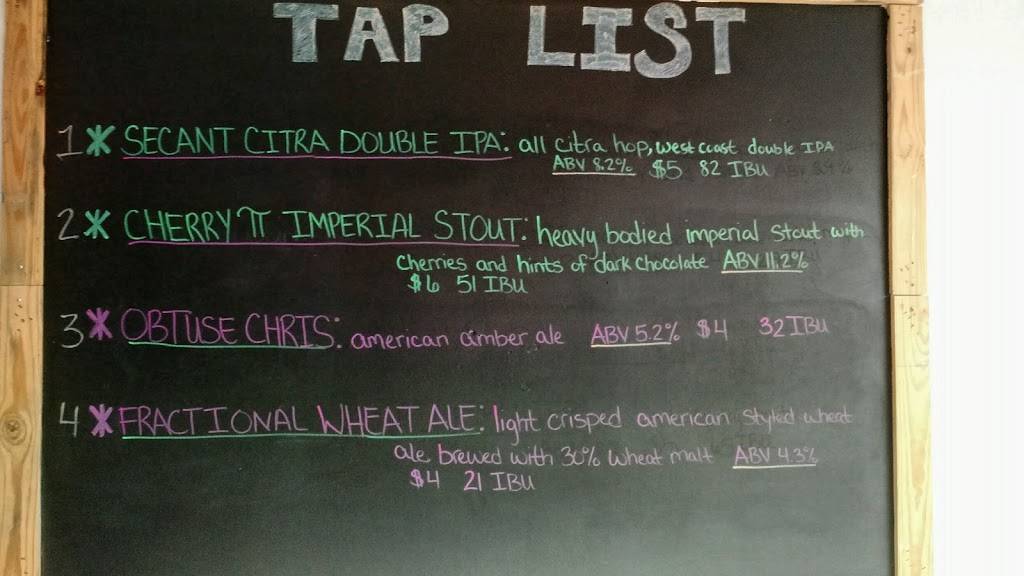 TAP LIST
1 * SECANT CITRA DOUBLE IPA: all citra hop, west coast double IPA
ABV 8.2% $5 82 IBU
2 * CHERRY π IMPERIAL STOUT: heavy bodied imperial stout with
cherries and hints of dark chocolate ABV 11.2%
$6 51 IBU
3 * OBTUSE CHRIS: american amber ale ABV 5.2% $4 32 IBU
4 * FRACTIONAL WHEAT ALE: light crisped american styled wheat
ale brewed with 30% wheat malt ABV 4.3%
$4 21 IBU